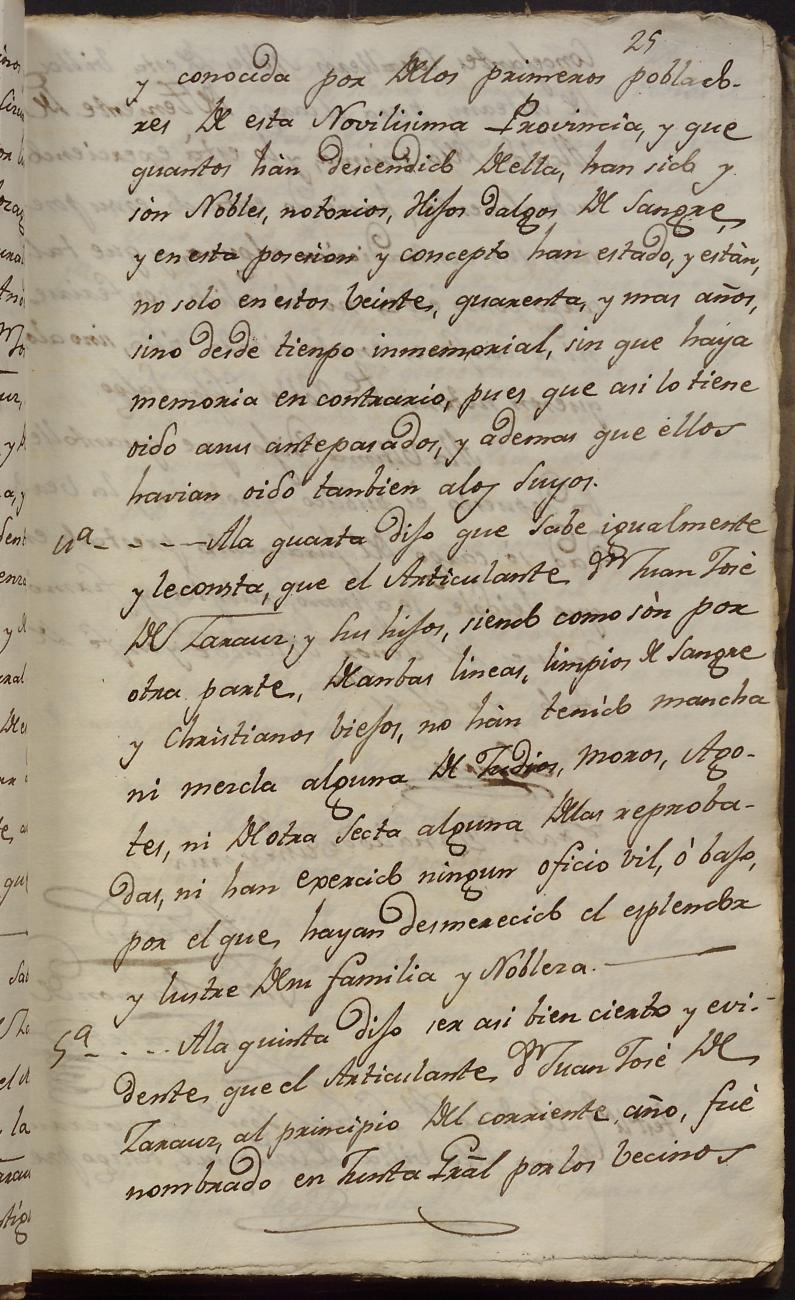 25
y conocida por Delos primeros poblado-
res De esta Novilisima Provincia, y que
quantos hàn descendido Deella, han sido y
sòn Nobles, notorios, Hijos dalgos De Sangre,
y en esta posesion y concepto han estado, y estàn,
no solo en estos beinte, quarenta, y mas años,
sino desde tienpo inmemorial, sin que haya
memoria en contrario, pues que asi lo tiene
oido asus antepasados, y ademas que èllos
havian oido tanbien alos Suyos.
4ª - - - - Ala quarta dijo que Sabe igualmente
y leconsta, que el Articulante Dn Juan Josè
De Zarauz, y Sus hijos, siendo como sòn por
otra parte, Deambas lineas, limpios de Sangre
y Christianos biejos, no hàn tenido mancha
ni mezcla alguna De Judios, Moros, Ago-
tes, ni De otra Secta alguna Delas reproba-
das, ni han exercido ningun oficio vil, ò bajo,
por el que hayan desmerecido el esplendor
y lustre Desu familia y Nobleza.
5ª - - - - Ala quinta dijo ser asi bien cierto y evi-
dente, que el Articulante Dn Juan Josè De
Zarauz, al principio Del corriente año, fuè
nombrado en Junta Gràl por los becinos